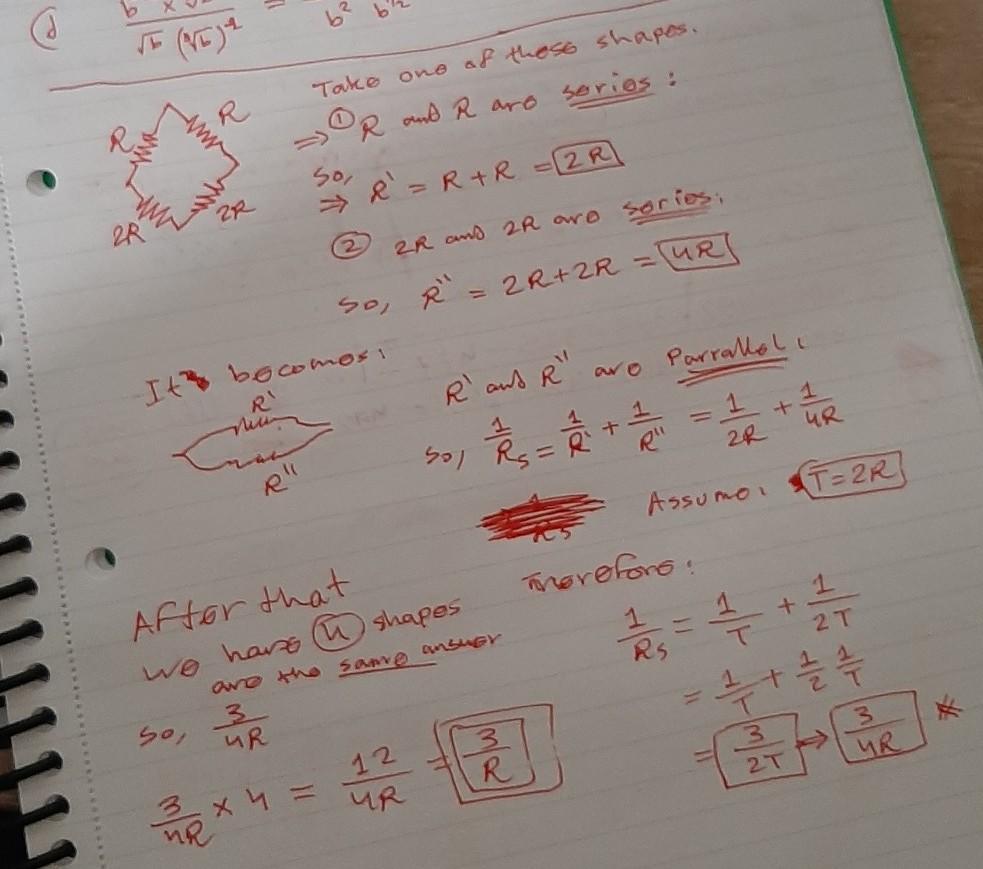 d) b x
√b (∜b)⁻¹ = b² b^½
Take one of these shapes.
R R
2R 2R
⇒ ① R and R are series:
so,
⇒ R' = R + R = 2R
② 2R and 2R are series:
so, R'' = 2R + 2R = 4R
It becomes:
R'
R''
R' and R'' are Parrallel:
so, 1/Rs = 1/R' + 1/R'' = 1/2R + 1/4R
Assume: T = 2R
Therefore:
1/Rs = 1/T + 1/2T
= 1/T + 1/2 1/T
= 3/2T → 3/4R *
After that
we have 4 shapes
are the same answer
so, 3/4R
3/4R x 4 = 12/4R = 3/R